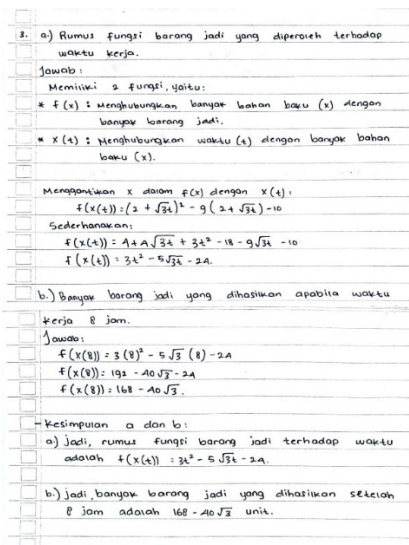 3. a.) Rumus fungsi barang jadi yang diperoleh terhadap
waktu kerja.
Jawab:
Memiliki 2 fungsi, yaitu:
* f(x) : Menghubungkan banyak bahan baku (x) dengan
banyak barang jadi.
* x(t) : Menghubungkan waktu (t) dengan banyak bahan
baku (x).
Menggantikan x dalam f(x) dengan x(t):
f(x(t)) = (2 + √3t)² - 9(2 + √3t) - 10
Sederhanakan:
f(x(t)) = 4 + 4√3t + 3t² - 18 - 9√3t - 10
f(x(t)) = 3t² - 5√3t - 24.
b.) Banyak barang jadi yang dihasilkan apabila waktu
kerja 8 jam.
Jawab:
f(x(8)) = 3(8)² - 5√3 (8) - 24
f(x(8)) = 192 - 40√3 - 24
f(x(8)) = 168 - 40√3.
- Kesimpulan a dan b:
a.) jadi, rumus fungsi barang jadi terhadap waktu
adalah f(x(t)) = 3t² - 5√3t - 24.
b.) jadi, banyak barang jadi yang dihasilkan setelah
8 jam adalah 168 - 40√3 unit.